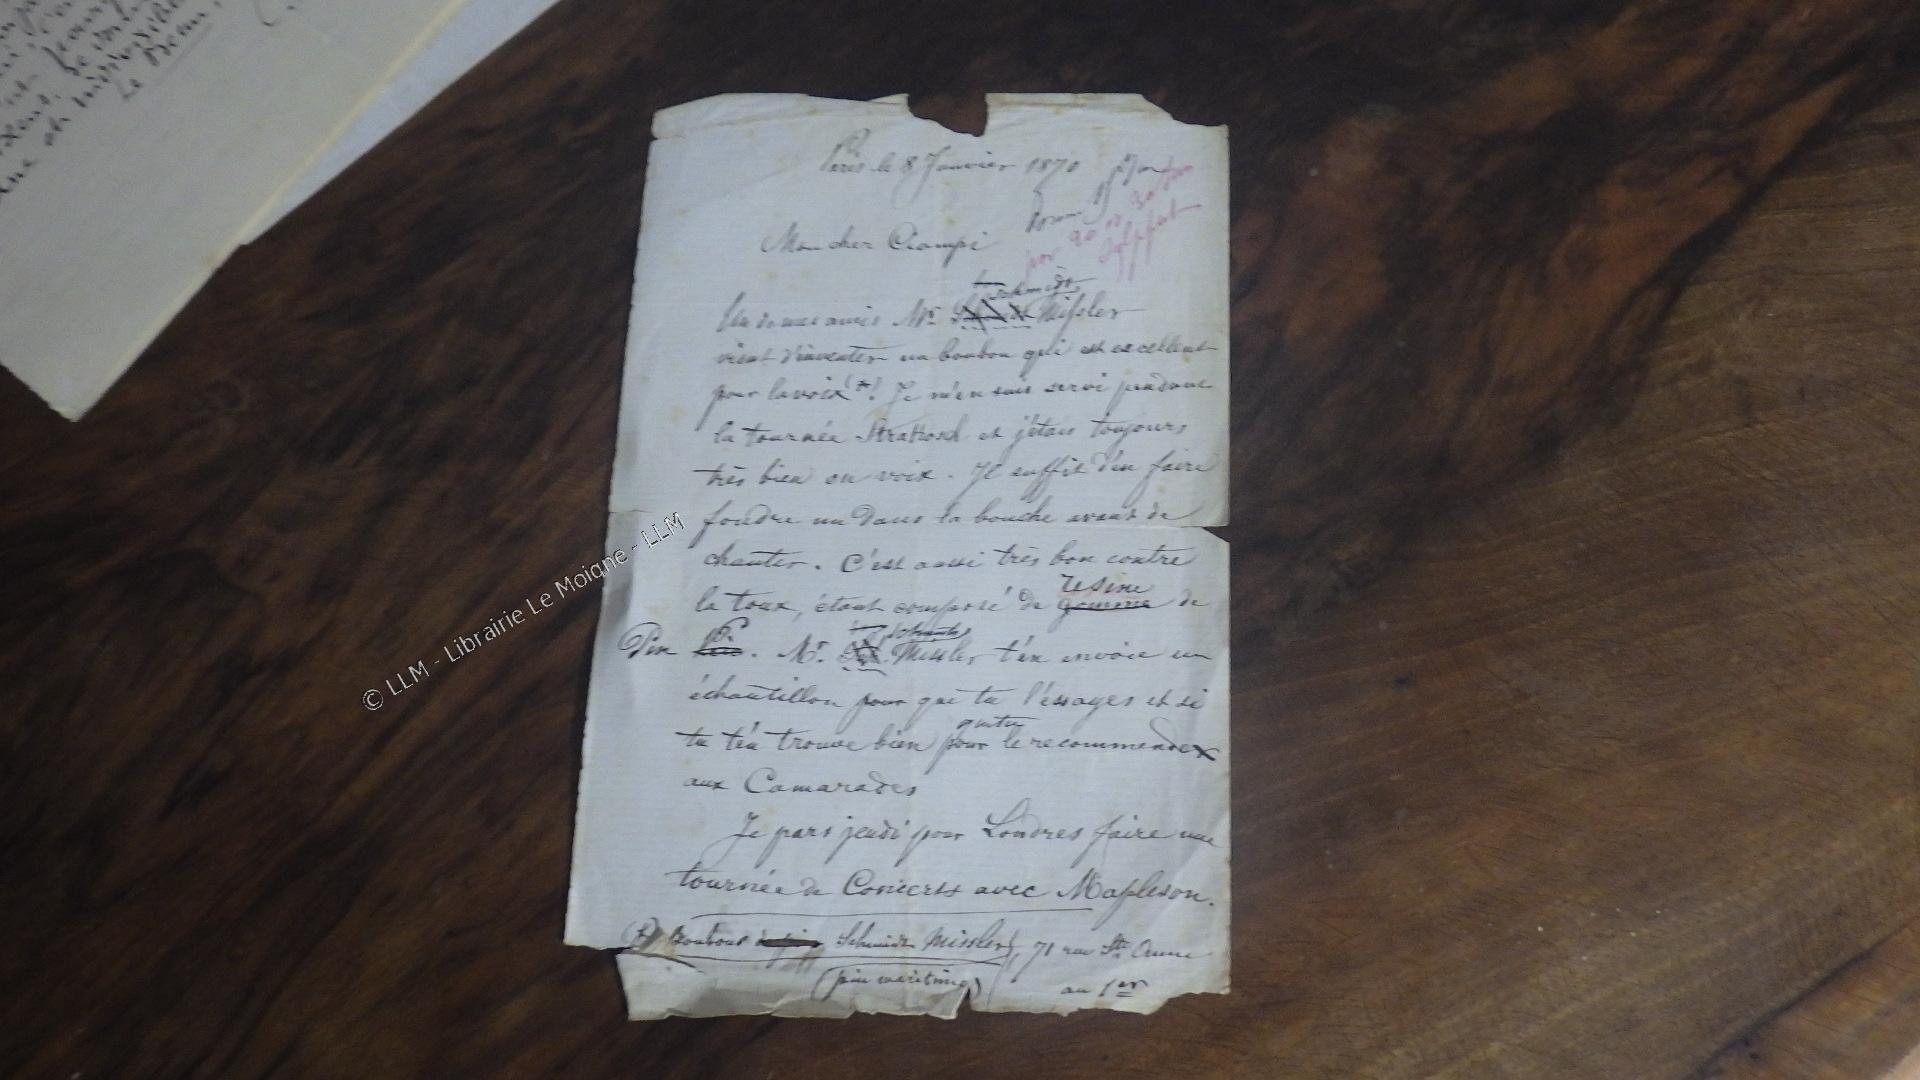 Paris le 8 Janvier 1870
Mon cher Ciampi
Un de mes amis Mr Schmidt Missler
vient d'inventer un bonbon qui est excellent
pour la voix (*). Je m'en suis servi pendant
la tournée Strakosch et j'étais toujours
très bien en voix. Il suffit d'en faire
fondre un dans la bouche avant de
chanter. C'est aussi très bon contre
la toux, étant composé de gomme resine de
Pin. Mr. Schmidt Missler t'en envoie un
échantillon pour que tu l'éssayes et si
tu t'en trouve bien pour le recommender
aux Camarades
Je pars jeudi pour Londres faire une
tournée de Concerts avec Mapleson.
(*) Bonbons Schmidt Missler, 71 rue Ste Anne
(pin maritime) au 1er
© LLM - Librairie Le Moigne - LLM